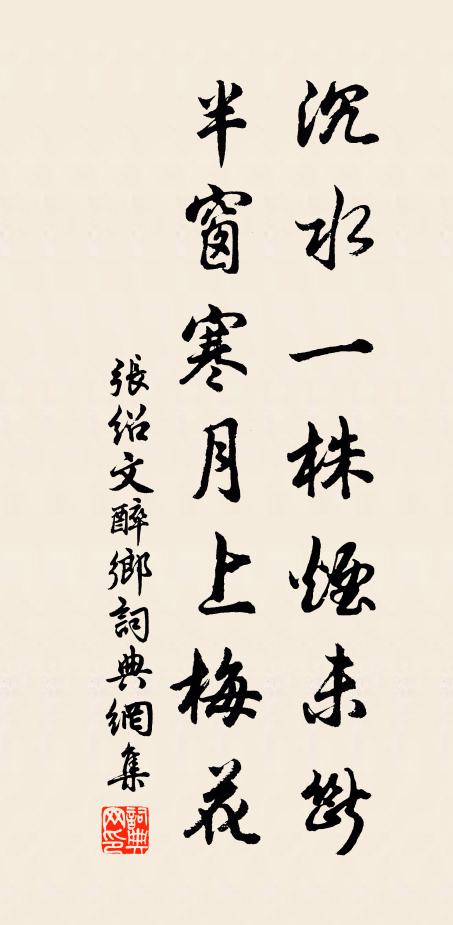 沉水一株煙未斷
半窗寒月上梅花
張紹文醉鄉詞典網集
詞典網印